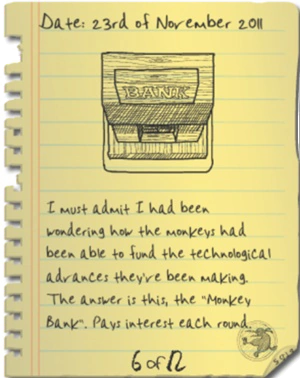 Date: 23rd of November 2011
BANK
I must admit I had been
wondering how the monkeys had
been able to fund the technological
advances they've been making.
The answer is this, the "Monkey
Bank". Pays interest each round.
6 of 12